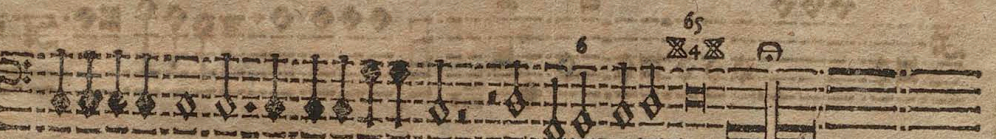 65
6 4